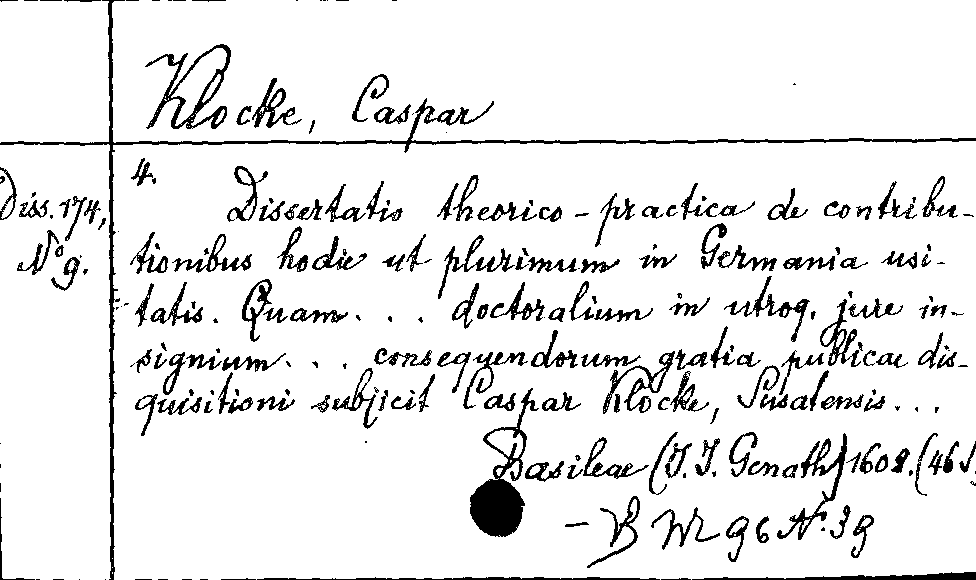 Klocke, Caspar
4.
Diss. 174,
No 9.
Dissertatio theorico-practica de contribu-
tionibus hodie ut plurimum in Germania usi-
tatis. Quam... doctoralium in utroq. jure in-
signium... consequendorum gratia publicae dis-
quisitioni subjicit Caspar Klocke, Susatensis...
Basileae (J. J. Genath) 1608. (46 S.)
— B
96 No. 39